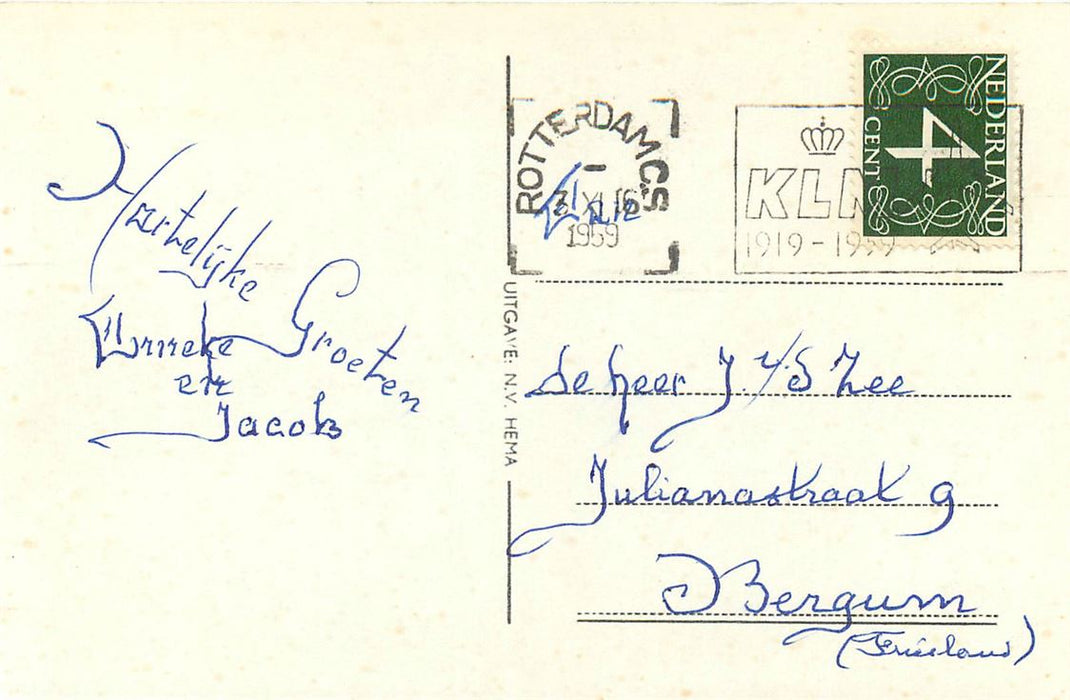 Hartelijke
Groeten
Anneke
en
Jacob
ROTTERDAM CS
1959
KLM
1919-1959
NEDERLAND
4
CENT
UITGAVE: N.V. HEMA
de heer J. v/d Zee
Julianastraat 9
Bergum
(Friesland)